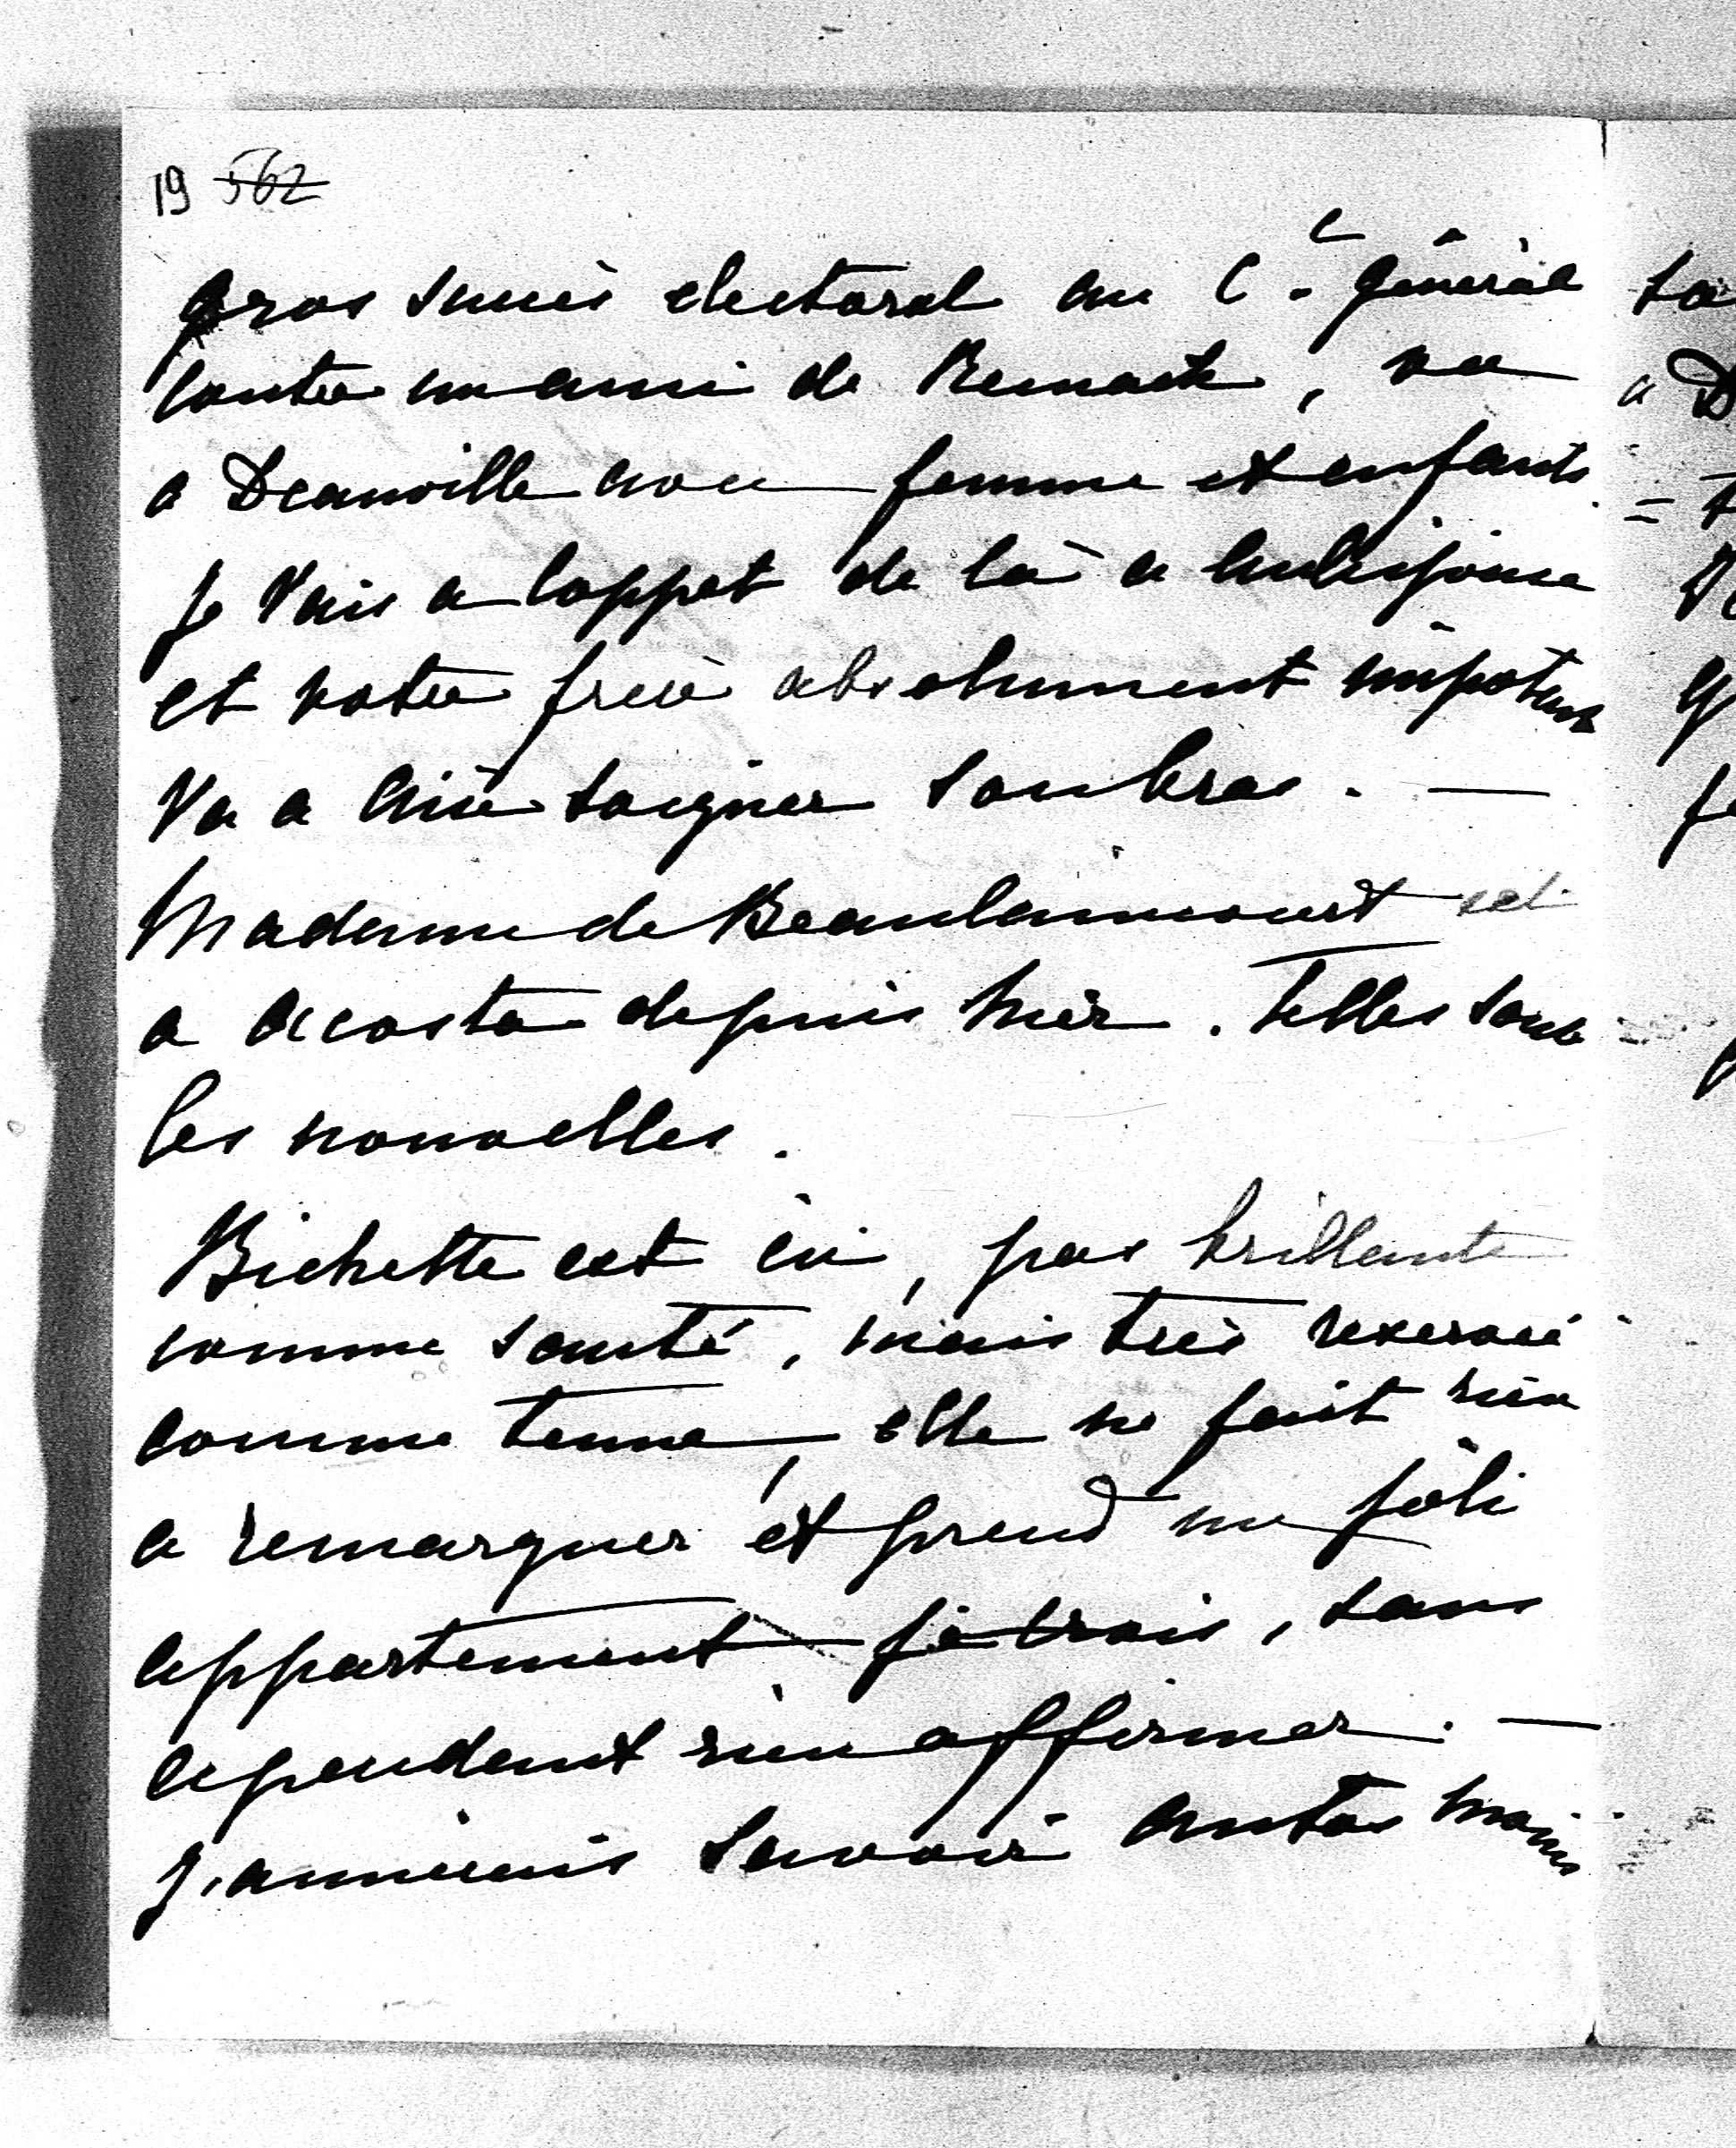 19 562
gros succès electoral au C. Général
contre un ami de Reinach, va
a Deauville avec femme et enfants
Je vais a Coppet de la a
et votre frere absolument impotent
va a Aix soigner son bras. —
Madame de Beaulaincourt est
a Acosta depuis hier. Telles sont
les nouvelles.
Bichette est ici, pas brillante
comme santé, mais très reservée
comme tenue, elle ne fait rien
a remarquer et prend un joli
appartement je crois, sans
cependant rien affirmer. —
J'aimerais savoir Mains